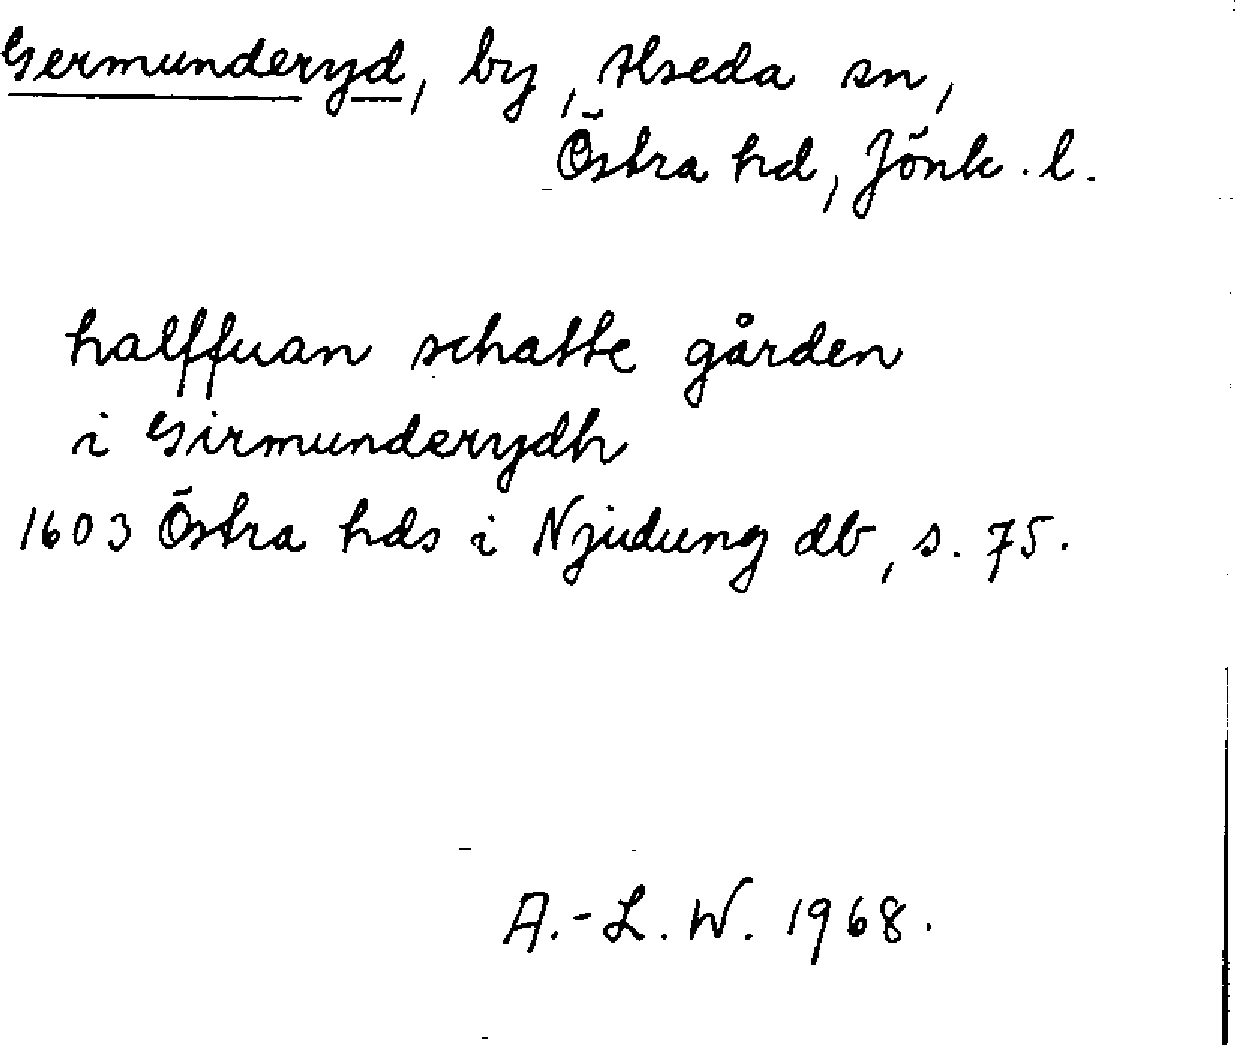 Germunderyd, by, Alseda sn,
Östra hd, Jönk. l.
halffuan schatte gården
i Girmunderydh
1603 Östra hds i Njudung db, s. 75.
A.-L. W. 1968.